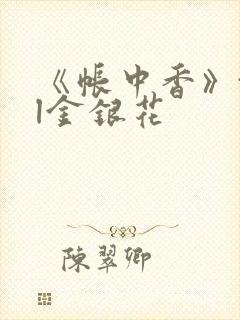 《帳中香》
|金銀花
陳翠卿